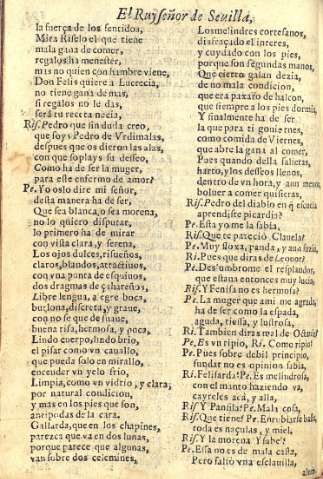 El Ruyseñor de Seuilla,
la fuerça de los sentidos,
Mira Riselo el que tiene
mala gana de comer,
regalos ha menester,
mas no quien con hambre viene,
Don Felis quiere a Lucrecia,
no tiene gana de mas,
si regalos no le das,
será tu receta necia,
Ris. Pedro que sin duda creo,
que soys Pedro de Vrdimalas,
despues que os dieron las alas,
con que soplays su desseo,
Como ha de ser la muger,
para este enfermo de amor?
Pe. Yo os lo dire mi señor,
desta manera ha de ser,
Que sea blanca, o sea morena,
no lo quiero disputar,
lo primero ha de mirar
con vista clara, y serena,
Los ojos dulces, risueños,
claros, blandos, atractiuos,
con vna ponta de esquiuos,
dos dragmas de çahareños,
Libre lengua, alegre boca,
burlona, discreta, y graue,
con no se que de suaue,
buena risa, hermosa, y poca,
Lindo cuerpo, lindo brio,
el pisar como vn cauallo,
que pueda solo en mirallo,
encender vn yelo frio,
Limpia, como vn vidrio, y clara,
por natural condicion,
y mas en los pies que son,
antipodas de la cara,
Gallarda, que en los chapines,
parezca que va en dos lunas,
porque parece que algunas,
van sobre dos celemines,
Los melindres cortesanos,
disfraçado el interes,
y cuydado con los pies,
que por son segundas manos,
Que cierto galan dezia,
de no mala condicion,
que era paxaro de halcon,
que siempre a los pies dormia,
Y finalmente ha de ser
la que para ti gouiernes,
como comida de Viernes,
que abre la gana al comer,
Pues quando della salieres,
harto, y los desseos llenos,
dentro de vn hora, y aun menos
boluer a comer quisieras,
Ris. Pedro del diablo en q̃ escuela
aprendiste picardia?
Pe. Esta yo me la sabia,
Ris. Que te pareciò Clauela?
Pe. Muy floxa, panda, y ana fria,
Ri. Pues que diras de Leonor?
Pe. Des'umbrome el resplandor,
que estaua entonces muy luzia,
Ris. Y Fenisa no es hermosa?
Pe. La muger que ami me agrada,
ha de ser como la espada,
aguda, tiessa, y lustrosa,
Ri. Tambien diras mal de Octauia?
Pe. Es vn ripio, Ri. Como ripio?
Pe. Pues sobre debil principio,
fundar no es opinion sabia,
Ri. Felisarda? Pe. Es melindrosa,
con el manto haziendo va,
cayreles acá, y alla,
Ris. Y Panfila? Pe. Mala cosa,
Ris. Que tiene? Pe.
toda es naguas, y miel,
Ris. Y la morena Ysabel?
Pe. Essa no es de mala casta,
Pero saliò vna esclauilla,